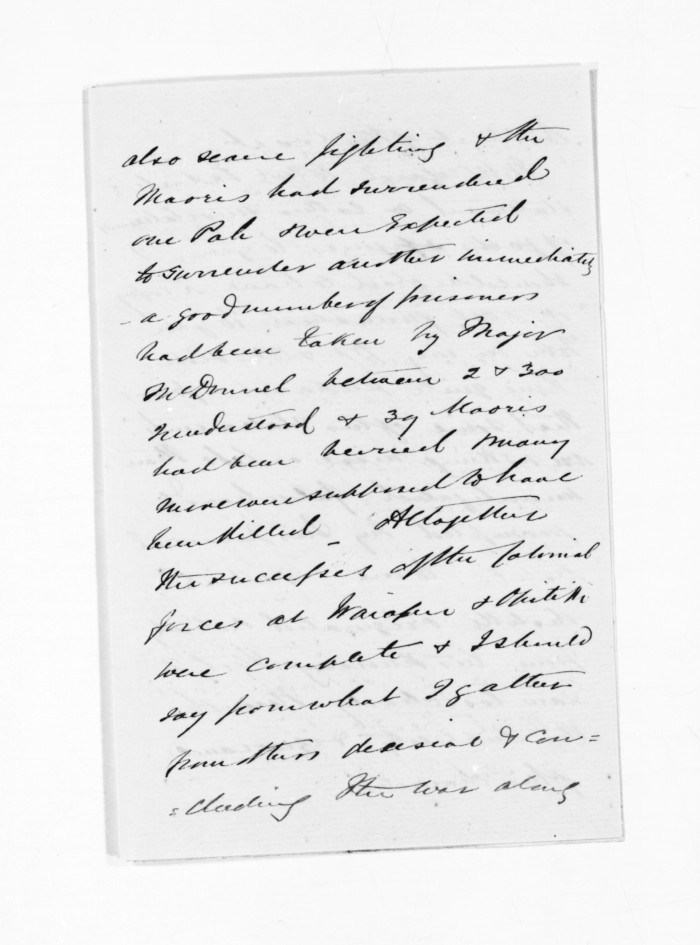 also severe fighting & the
Maoris had surrendered
one Pah & were Expected
to surrender another immediately
- a good number of prisoners
had been taken by Major
McDonnel between 2 & 300
I understood & 39 Maoris
had been buried & many
more were supposed to have
been killed - Altogether
the successes of the Colonial
forces at Waiapu & Opitiki
were complete & I should
say from what I gather
from others decisive & con=
=cluding the war along